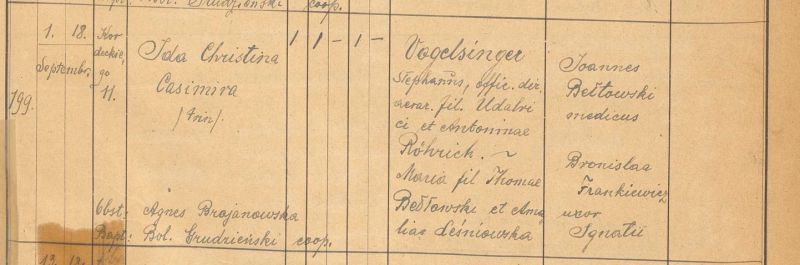 coop.
1. 18. Kor
deckie,
go
11.
Septembr.
199.
Ida Christina
Casimira
/trin/
1 1 - 1 -
Vogelsinger
Stephanus, offic. dir.
aerar. fil. Udalri
ci et Antoninae
Röhrich. ~
Maria fil Thomae
Bełtowski et Ama
liae Leśniowska
Joannes
Bełtowski
medicus
Bronislaa
Frankiewicz
uxor
Ignatii
Obst: Agnes Brajanowska
Bapt: Bol. Grudzieński coop.